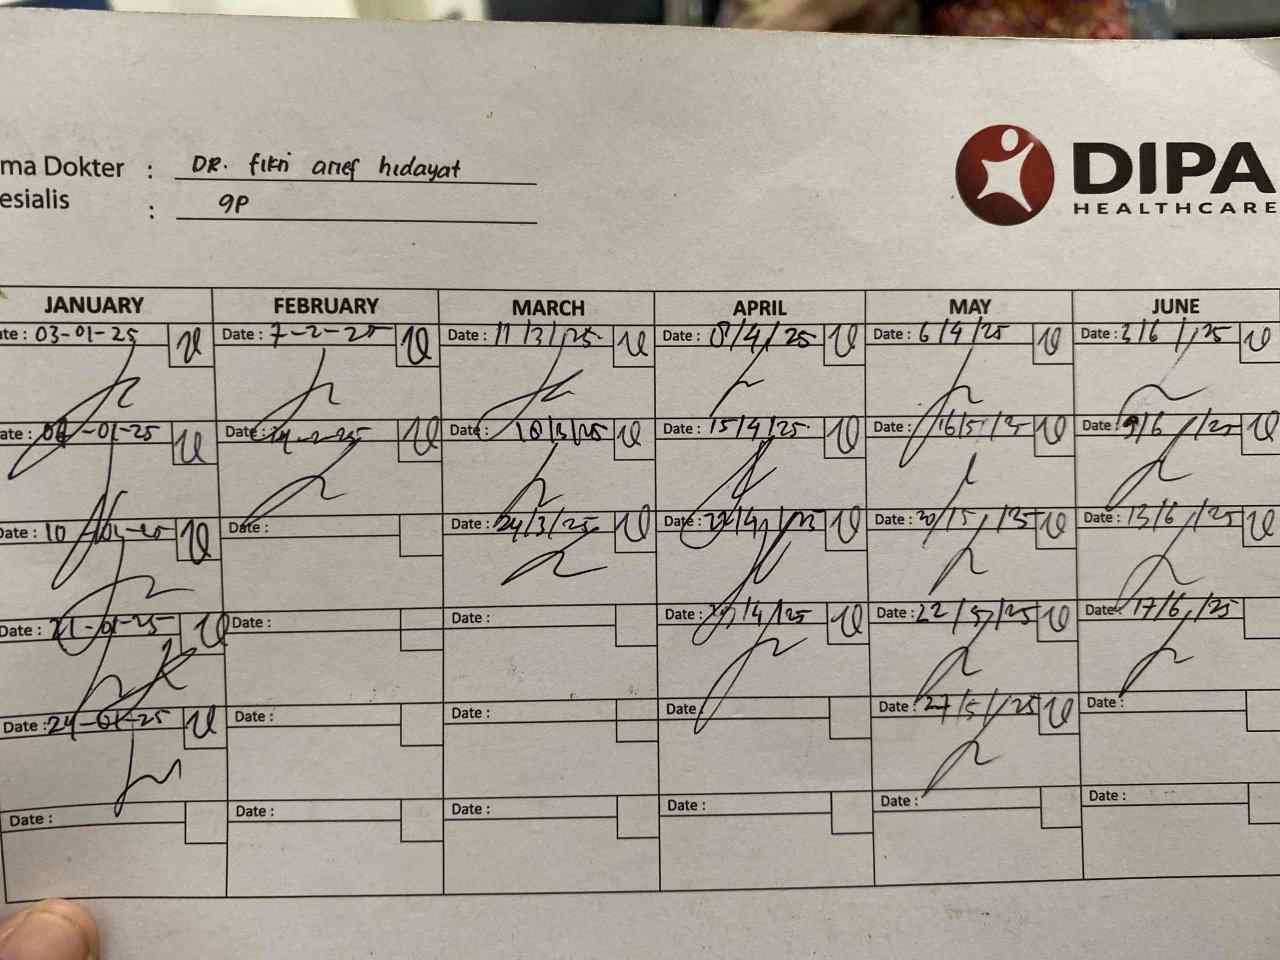 ma Dokter : DR. fikri arief hidayat
esialis : gp
DIPA
HEALTHCARE
JANUARY FEBRUARY MARCH APRIL MAY JUNE
te : 03-01-25 Date : 7-2-25 Date : 11/3/25 Date : 8/4/25 Date : 6/4/25 Date : 3/6/25
ate : -01-25 Date : 14-2-25 Date : 18/3/25 Date : 15/4/25 Date : 16/5/25 Date : 9/6/25
Date : 10 Date : Date : 24/3/25 Date : 22/4/25 Date : 20/5/25 Date : 13/6/25
Date : 21-01-25 Date : Date : Date : /4/25 Date : 22/5/25 Date : 17/6/25
Date : 24-01-25 Date : Date : Date : Date : 27/5/25 Date :
Date : Date : Date : Date : Date : Date :